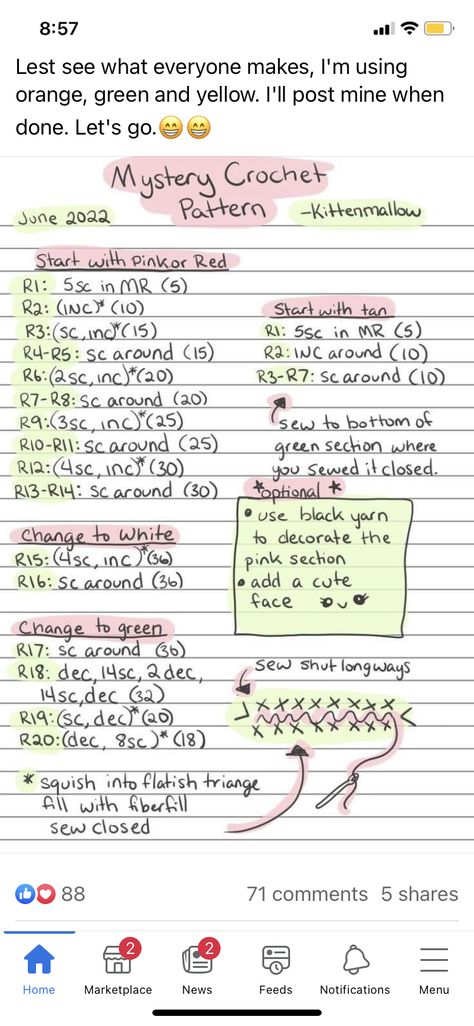 8:57
Lest see what everyone makes, I'm using
orange, green and yellow. I'll post mine when
done. Let's go.😁😁
Mystery Crochet
Pattern
-Kittenmallow
June 2022
Start with Pink or Red
R1: 5sc in MR (5)
R2: (INC)* (10)
R3: (sc, inc)* (15)
R4-R5: sc around (15)
R6: (2sc, inc)* (20)
R7-R8: sc around (20)
R9: (3sc, inc)* (25)
R10-R11: sc around (25)
R12: (4sc, inc)* (30)
R13-R14: sc around (30)
Change to White
R15: (4sc, inc)* (36)
R16: sc around (36)
Change to green
R17: sc around (36)
R18: dec, 14sc, 2dec,
14sc, dec (32)
R19: (sc, dec)* (20)
R20: (dec, 8sc)* (18)
* squish into flatish triange
fill with fiberfill
sew closed
Start with tan
R1: 5sc in MR (5)
R2: INC around (10)
R3-R7: sc around (10)
sew to bottom of
green section where
you sewed it closed.
*optional *
• use black yarn
to decorate the
pink section
• add a cute
face
sew shut longways
88
71 comments 5 shares
2
2
Home
Marketplace
News
Feeds
Notifications
Menu